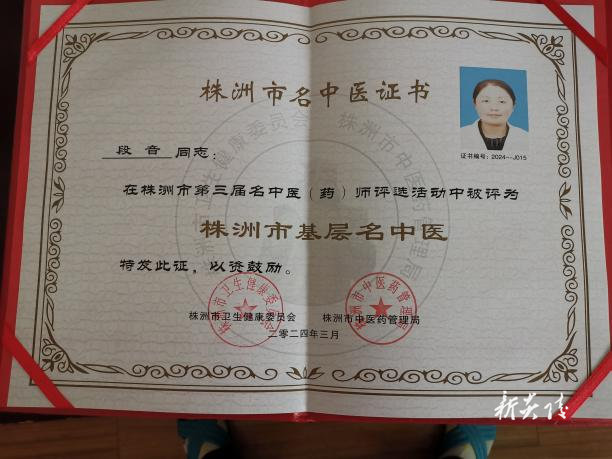 株洲市名中医证书
证书编号：2024--J015
段音 同志：
在株洲市第三届名中医（药）师评选活动中被评为
株洲市基层名中医
特发此证，以资鼓励。
株洲市卫生健康委员会 株洲市中医药管理局
二零二四年三月
株洲市卫生健康委员会
株洲市中医药管理局
株洲市卫生健康委员会 株洲市中医药管理局